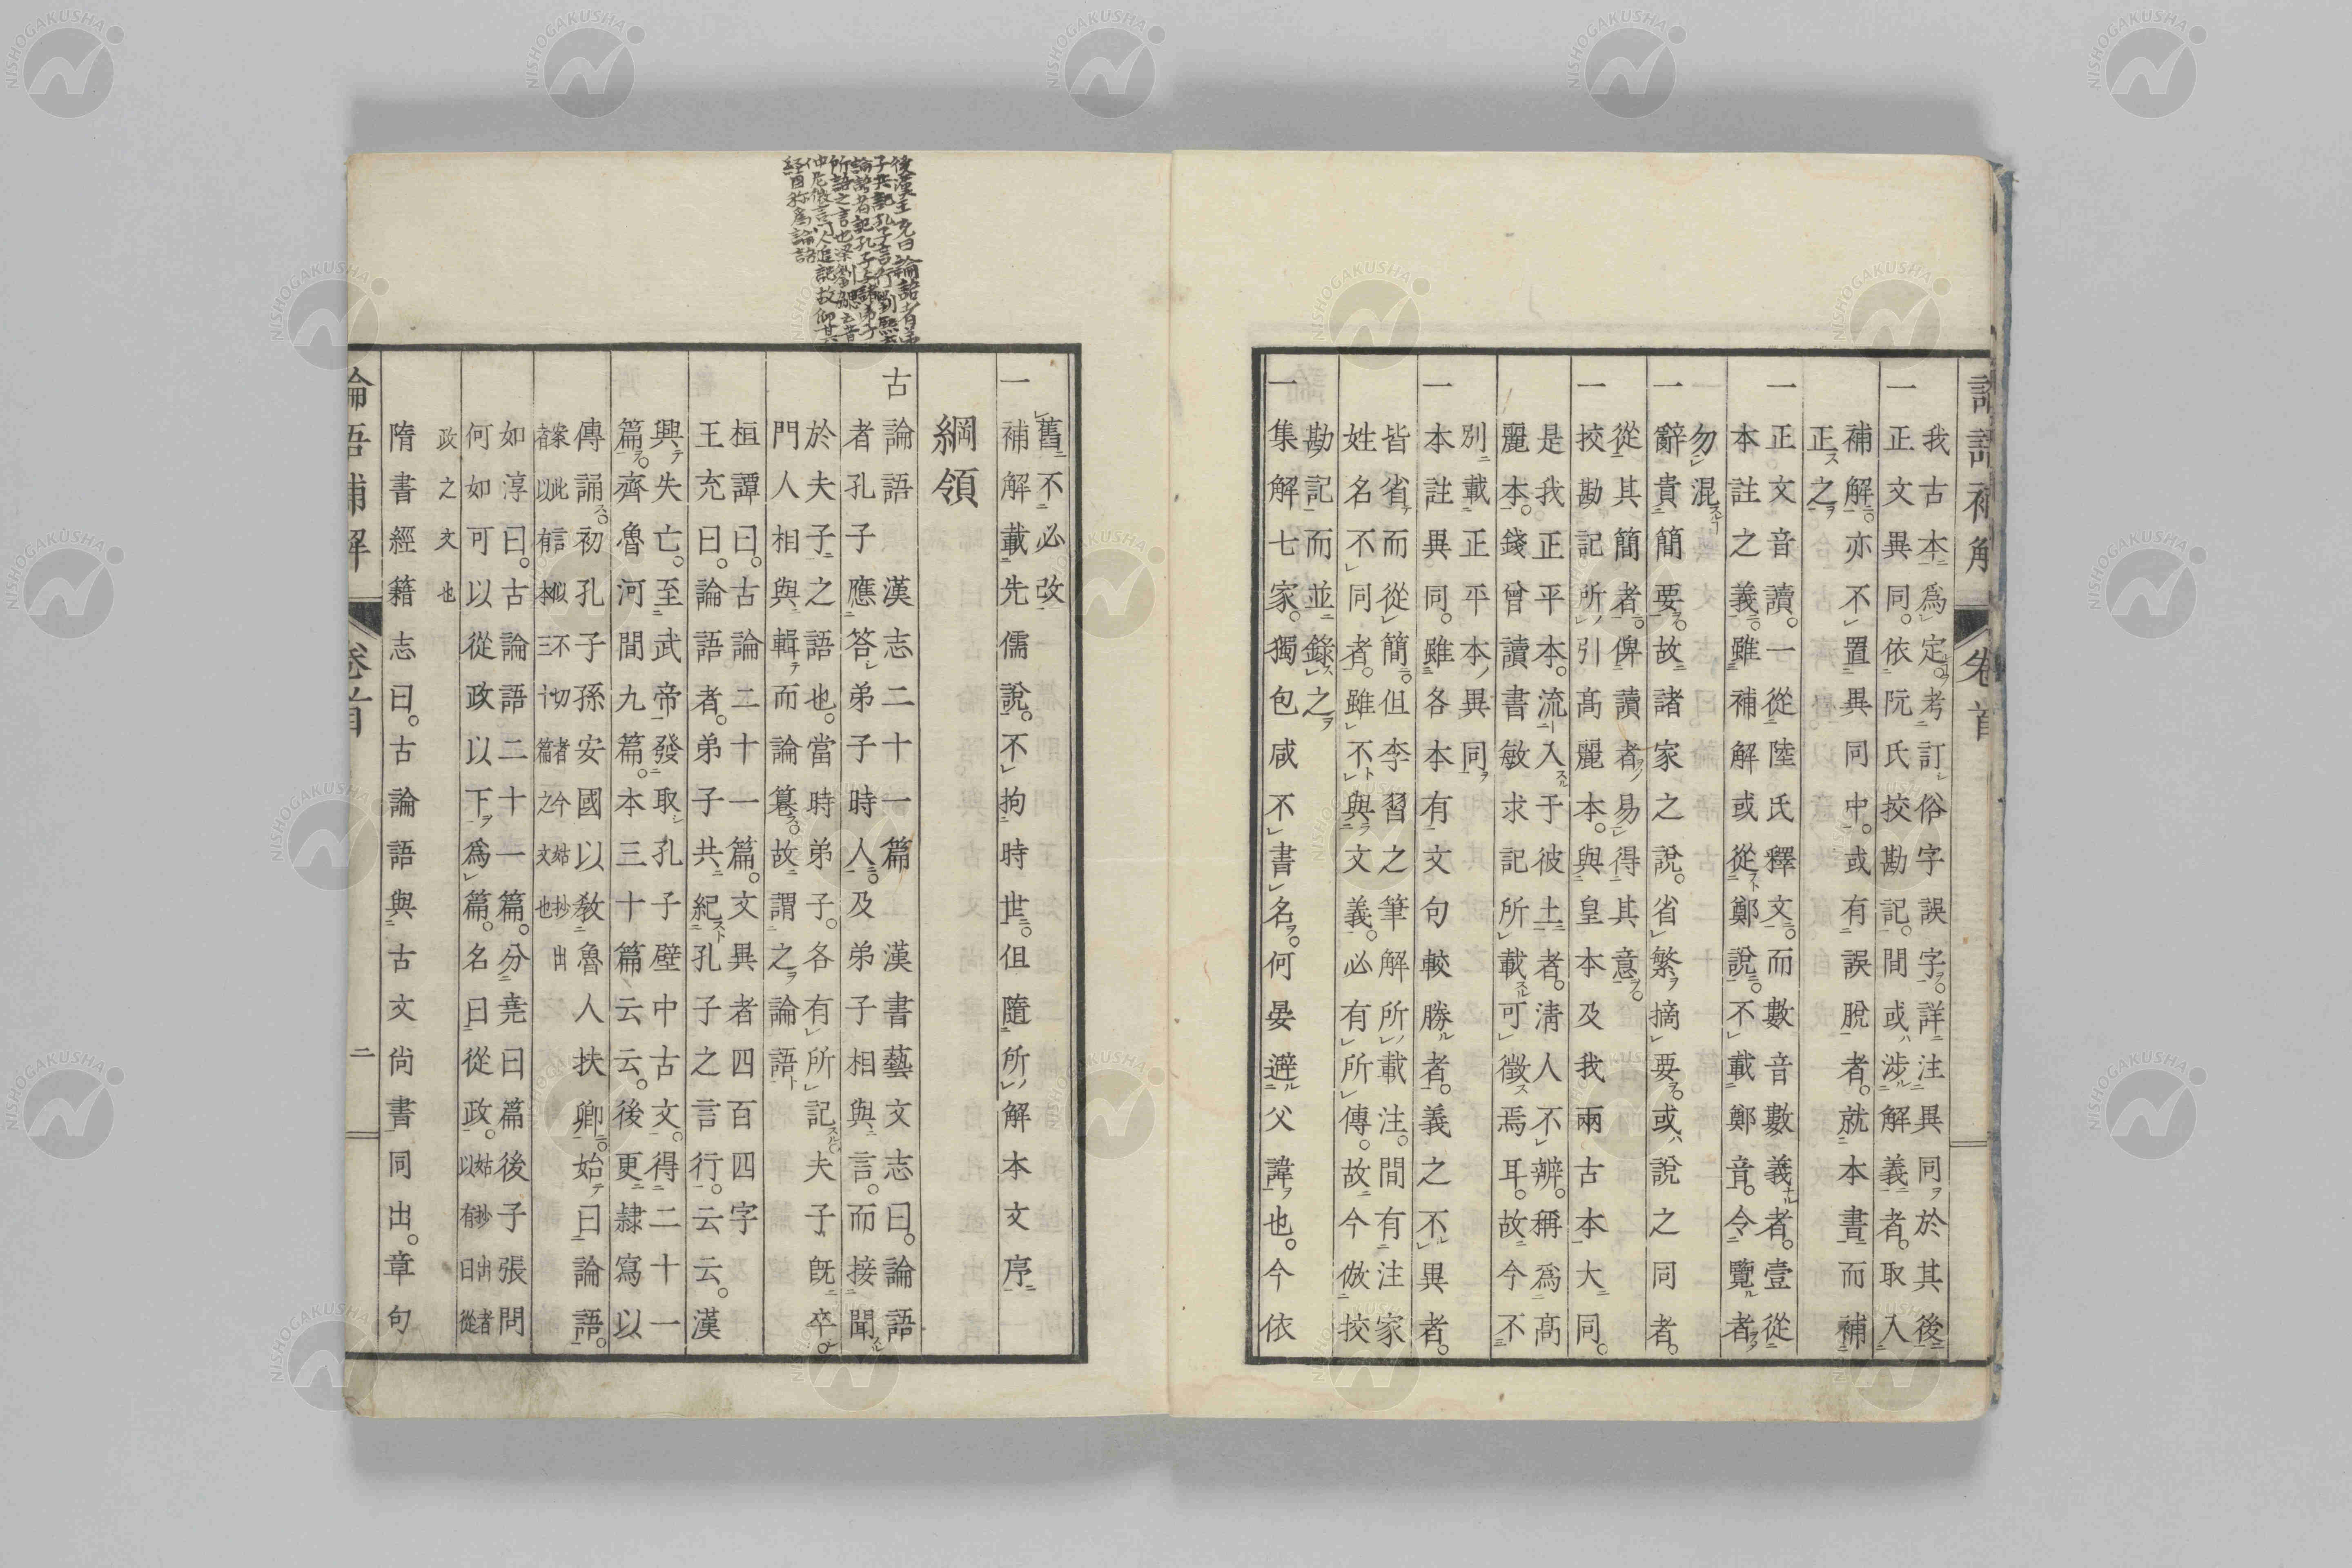 論語補解 卷首
我古本爲定。考訂俗字誤字。詳注異同於其後
一正文異同。依阮氏挍勘記。間或涉解義者。取入
補解。亦不置異同中。或有誤脫者。就本書而補
正之
一正文音讀。一從陸氏釋文。而數音數義者。壹從
本註之義。雖補解或從鄭說。不載鄭音。令覽者
勿混
一辭貴簡要。故諸家之說。省繁摘要。或說之同者。
從其簡者。俾讀者易得其意。
一挍勘記所引高麗本。與皇本及我兩古本大同。
是我正平本。流入于彼土者。淸人不辨。稱爲高
麗本。錢曾讀書敏求記所載可徵焉耳。故今不
別載正平本異同
一本註異同。雖各本有文句較勝者。義之不異者。
皆省而從簡。但李習之筆解所載注。間有注家
姓名不同者。雖不與文義。必有所傳。故今倣挍
勘記而並錄之
一集解七家。獨包咸不書名。何晏避父諱也。今依
舊不必改
一補解載先儒說。不拘時世。但隨所解本文序
綱領
古論語 漢志二十一篇 漢書藝文志曰。論語
者孔子應答弟子時人。及弟子相與言。而接聞
於夫子之語也。當時弟子。各有所記。夫子旣卒。
門人相與輯而論篹。故謂之論語
桓譚曰。古論二十一篇。文異者四百四字
王充曰。論語者。弟子共紀孔子之言行。云云。漢
興失亡。至武帝發取孔子壁中古文。得二十一
篇。齊魯河間九篇。本三十篇云云。後更隷寫以
傳誦。初孔子孫安國以敎魯人扶卿。始曰論語。
案此言似不切者今姑抄出
者以有本三十篇之文也
如淳曰。古論語二十一篇。分堯曰篇後子張問
何如可以從政以下爲篇。名曰從政。姑抄出者
以有曰從
政之文也
隋書經籍志曰。古論語與古文尙書同出。章句
論語補解 卷首 二
後漢王充曰論語者弟
子共記孔子言行劉熙曰
論語者記孔子與諸弟子
所語之言也梁劉勰云昔
仲尼微言門人追記故仰其
經目稱爲論語
NISHOGAKUSHA